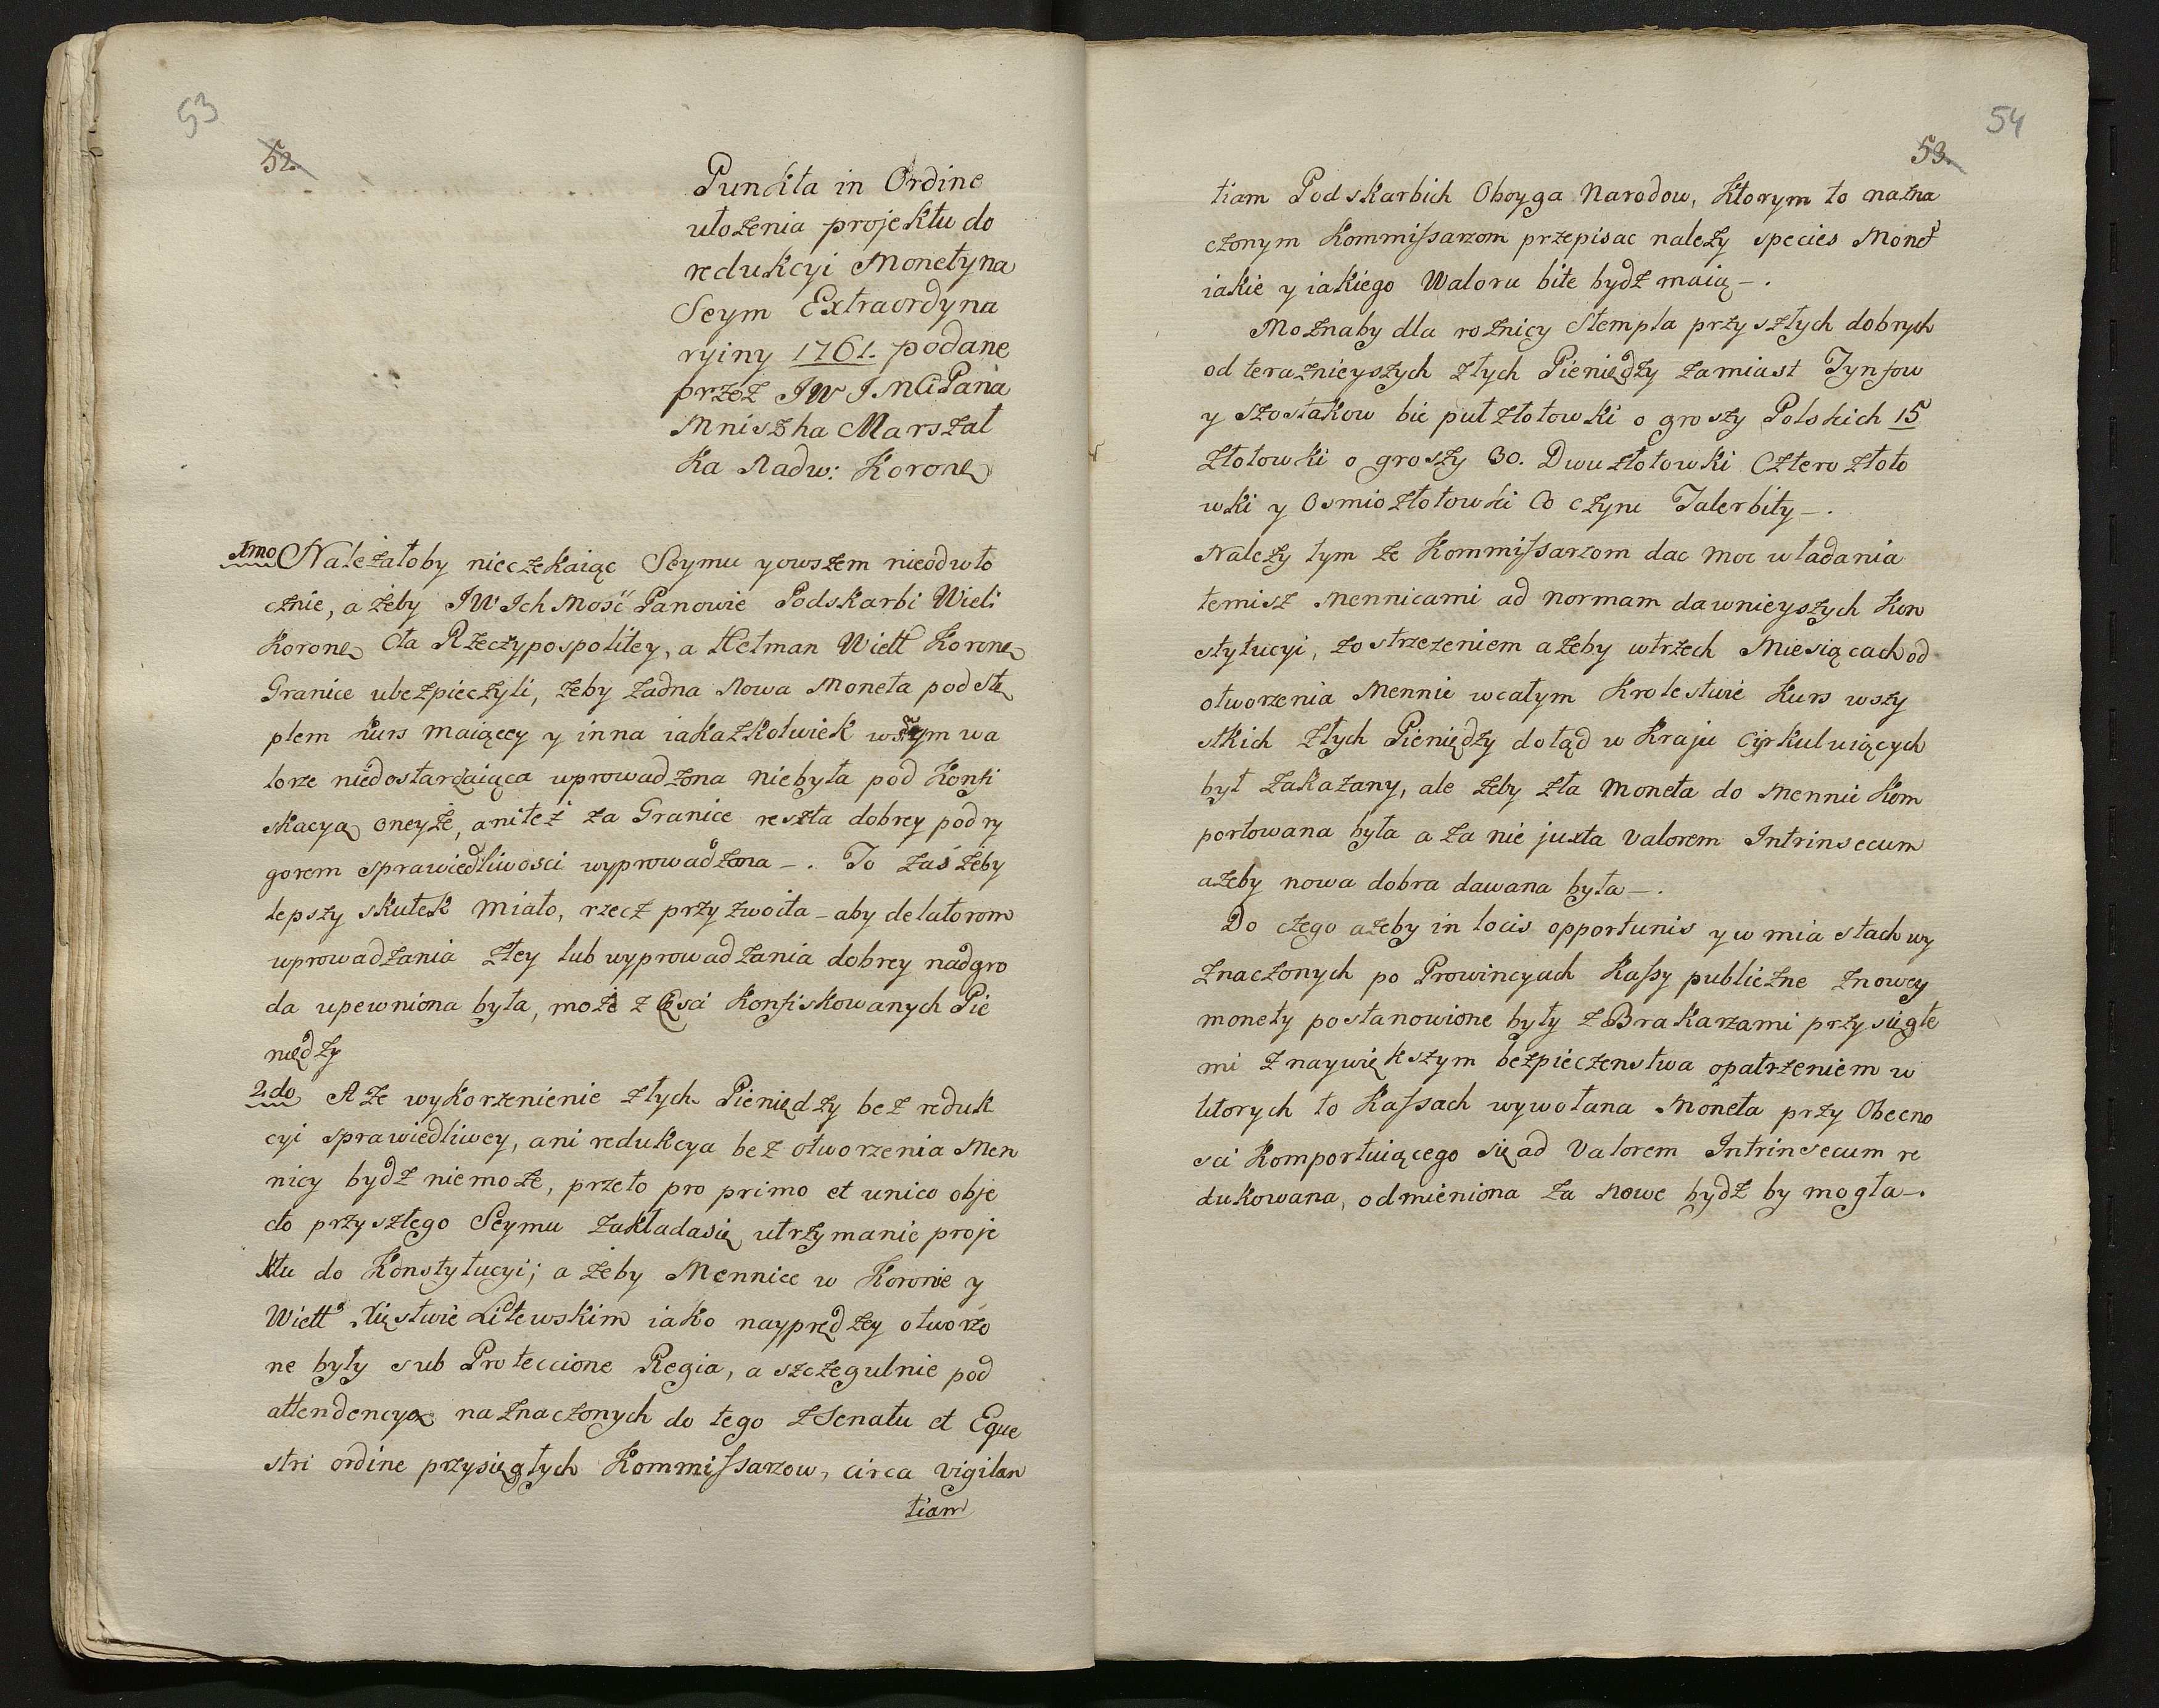 53
52.
Punkta in Ordine
ułożenia projektu do
redukcyi Monety na
Seym Extraordyna
ryiny 1761. podane
przez JW JMCi Pana
Mniszka Marszał
ka Nadw: Koronę
1mo Należałoby nieczekaiąc Seymu y owszem nieodwło
cznie, ażeby JW Ich Mość Panowie Podskarbi Wieli
Koronę Cła Rzeczypospolitey, a Hetman Wielł Koronę
Granice ubezpieczyli, żeby żadna Nowa Moneta pod Stę
plem kurs maiącey y inna iakażkolwiek w swym wa
lorze niedostarczaiąca uprowadzona niebyła pod Konfi
skacyą oneyże, ani też za Granice reszta dobrey pod ry
gorem sprawiedliwosci wyprowadzona –. To zaś żeby
lepszy skutek miało, rzecz przyzwoita – aby delatorom
uprowadzania złey lub wyprowadzania dobrey nadgro
da upewniona była, może z Częsci Konfiskowanych Pie
niędzy
2do A że wykorzenienie złych Pieniędzy bez reduk
cyi sprawiedliwey, ani redukcya bez otworzenia Men
nicy bydź niemoże, przeto pro primo et unico obje
cto przyszłego Seymu zakłada się utrzymanie proje
ktu do Konstytucyi; a żeby Mennice w Koronie y
Wielł Xięstwie Litewskim iako nayprędzey otworzo
ne były sub Proteccione Regia, a szczegulnie pod
attendencyą naznaczonych do tego z Senatu et Eque
stri ordine przysięgłych Kommissarzow, circa vigilan
tiam
54
53.
tiam Podskarbich Oboyga Narodow, Ktorym to nazna
czonym Kommissarzom przepisac należy species Monet
iakie y iakiego Waloru bite bydź maią –.
Możnaby dla rożnicy Stempla przyszłych dobrych
od teraznieyszych złych Pieniędzy zamiast Tynfow
y szostakow bic puł złotowki o groszy Polskich 15
złotowki o groszy 30. Dwuzłotowki Czterozłoto
wki y Osmiozłotowki Co czyni Taler bity –.
Należy tym że Kommissarzom dac moc władania
temisz Mennicami ad normam dawnieyszych Kon
stytucyi, zostrzeżeniem ażeby w trzech Miesiącach od
otworzenia Mennic w całym Krolestwie Kurs wszy
stkich złych Pieniędzy dotąd w Kraju Cyrkuluiących
był zakazany, ale żeby zła Moneta do Mennic Kom
portowana była a za nie juxta valorem Intrinsecum
ażeby nowa dobra dawana była –.
Do czego ażeby in locis opportunis y w miastach wy
znaczonych po Prowincyach Kassy publiczne z nowey
monety postanowione były z Brakarzami przysięgłe
mi z naywiększym bezpieczenstwa opatrzeniem w
ktorych to Kassach wywołana Moneta przy Obecno
sci Komportuiącego się ad Valorem Intrinsecum re
dukowana, odmieniona za nowe bydź by mogła –.